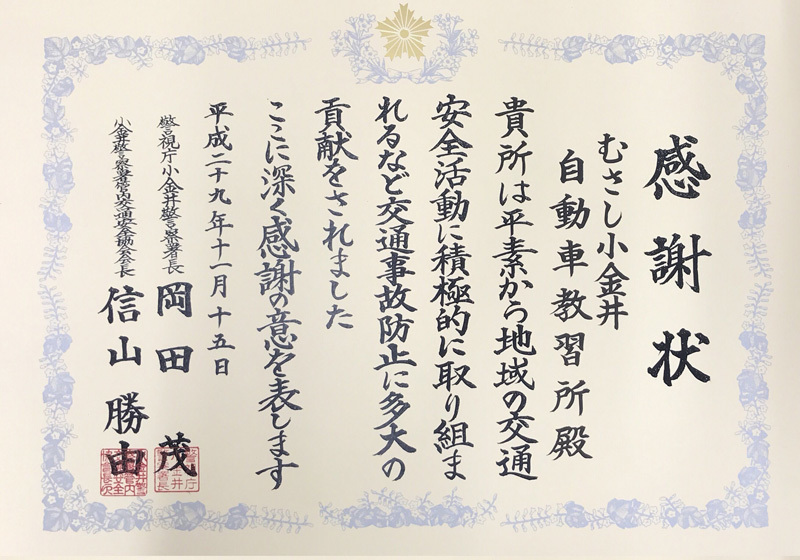 感謝状
むさし小金井
自動車教習所殿
貴所は平素から地域の交通
安全活動に積極的に取り組ま
れるなど交通事故防止に多大の
貢献をされました
ここに深く感謝の意を表します
平成二十九年十一月十五日
警視庁小金井警察署長 岡田 茂
小金井警察署管内交通安全協会会長 信山 勝由